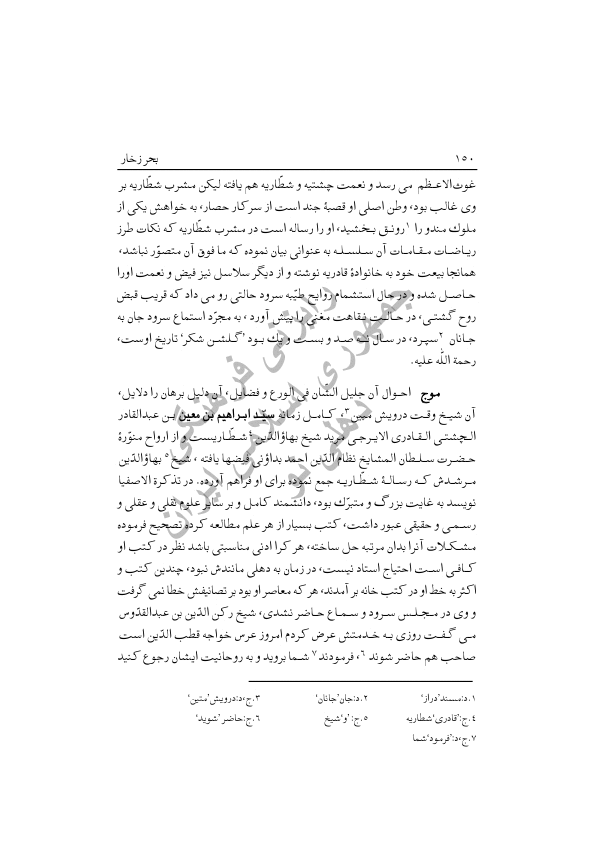 ۱۵۰ بحر زخار
غوث‌الاعظم می رسد و نعمت چشتیه و شطّاریه هم یافته لیکن مشرب شطّاریه بر
وی غالب بود، وطن اصلی او قصبۀ جند است از سرکار حصار، به خواهش یکی از
ملوك مندو را ۱ رونق بخشید، او را رساله است در مشرب شطّاریه که نکات طرز
ریاضات مقامات آن سلسله به عنوانی بیان نموده که ما فوق آن متصوّر نباشد،
همانجا بیعت خود به خانوادۀ قادریه نوشته و از دیگر سلاسل نیز فیض و نعمت اورا
حاصل شده و در حال استشمام روایح طیّبه سرود حالتی رو می داد که قریب قبض
روح گشتی، در حالت نقاهت مغنّی را پیش آورد، به مجرّد استماع سرود جان به
جانان ۲ سپرد، در سال نه صد و بست و یك بود ’گلشن شکر‘ تاریخ اوست،
رحمة اللّه علیه.
موج احوال آن جلیل الشّان فی الورع و فضایل، آن دلیل برهان را دلایل،
آن شیخ وقت درویش مبین۳، کامل زمانه سیّد ابراهیم بن معین بن عبدالقادر
الچشتی القادری الایرجی مرید شیخ بهاؤالدّین۴ شطّاریست و از ارواح منوّرۀ
حضرت سلطان المشایخ نظام الدّین احمد بداؤنی فیضها یافته، شیخ۵ بهاؤالدّین
مرشدش که رسالۀ شطّاریه جمع نموده برای او فراهم آورده. در تذکرة الاصفیا
نویسد به غایت بزرگ و متبرّك بود، دانشمند کامل و بر سایر علوم نقلی و عقلی و
رسمی و حقیقی عبور داشت، کتب بسیار از هر علم مطالعه کرده تصحیح فرموده
مشکلات آنرا بدان مرتبه حل ساخته، هر کرا ادنی مناسبتی باشد نظر در کتب او
کافی است احتیاج استاد نیست، در زمان به دهلی مانندش نبود، چندین کتب و
اکثر به خط او در کتب خانه بر آمدند، هر که معاصر او بود بر تصانیفش خطا نمی گرفت
و وی در مجلس سرود و سماع حاضر نشدی، شیخ رکن الدّین بن عبدالقدّوس
می گفت روزی به خدمتش عرض کردم امروز عرس خواجه قطب الدّین است
صاحب هم حاضر شوند ۶، فرمودند ۷ شما بروید و به روحانیت ایشان رجوع کنید
۱. د:مسند’دراز‘ ۲. د:جان’جانان‘ ۳. ج،د:درویش’متین‘
۴. ج:’قادری‘شطاریه ۵. ج:’و‘شیخ ۶. ج:حاضر’شوید‘
۷. ج،د:’فرمود‘شما
رایزنی فرهنگی
جمهوری اسلامی ایران
دهلی نو